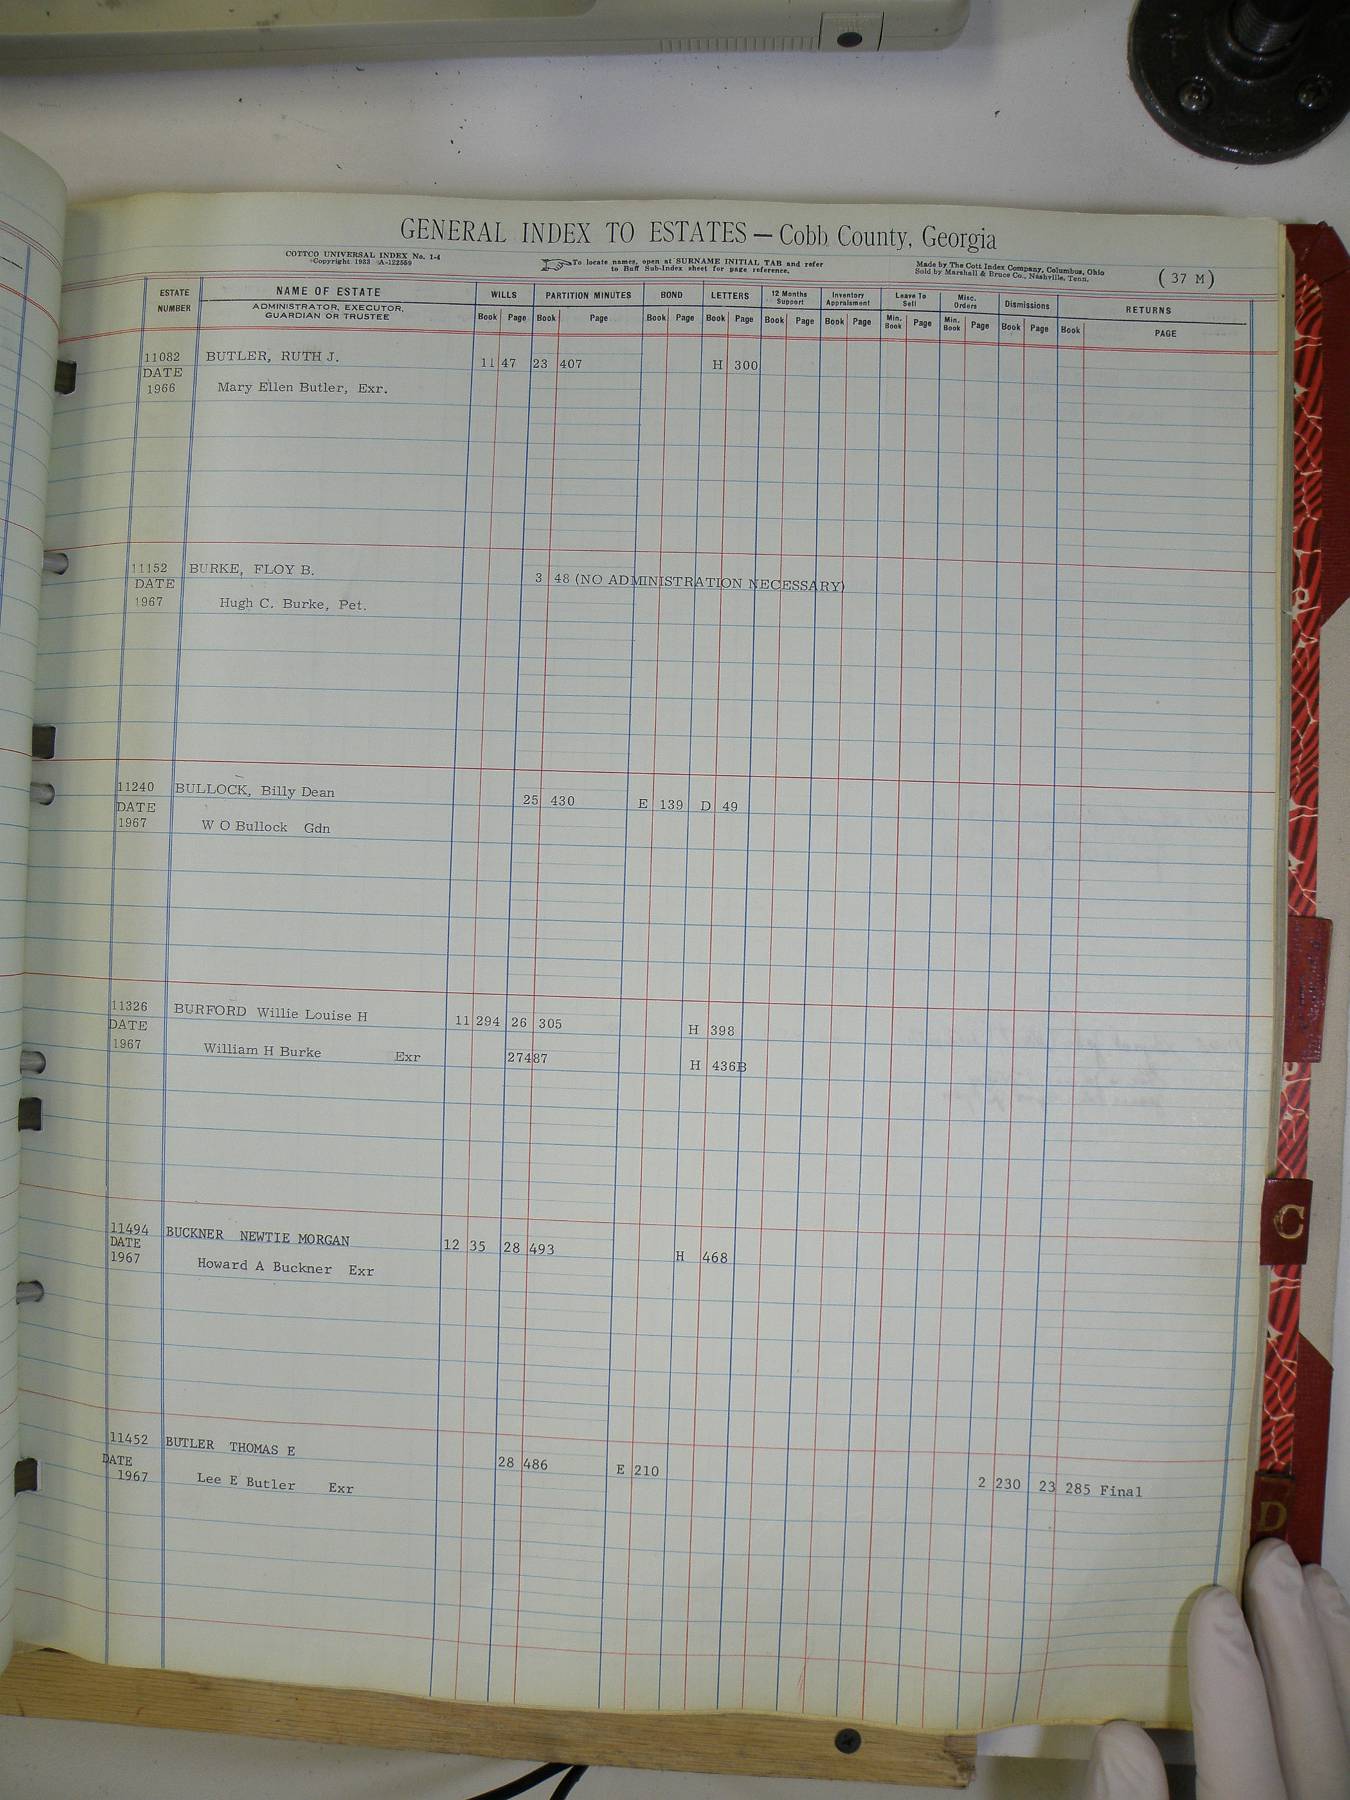 GENERAL INDEX TO ESTATES — Cobb County, Georgia
COTTCO UNIVERSAL INDEX No. 1-4
Copyright 1933 A-122569
To locate names, open at SURNAME INITIAL TAB and refer
to Buff Sub-Index sheet for page reference.
Made by The Cott Index Company, Columbus, Ohio
Sold by Marshall & Bruce Co., Nashville, Tenn.
( 37 M )
ESTATE NUMBER
NAME OF ESTATE
ADMINISTRATOR, EXECUTOR,
GUARDIAN OR TRUSTEE
WILLS PARTITION MINUTES BOND LETTERS 12 Months Support Inventory Appraisment Leave To Sell Misc. Orders Dismissions RETURNS
Book Page Book Page Book Page Book Page Book Page Book Page Min. Book Page Min. Book Page Book Page Book PAGE
11082 BUTLER, RUTH J. 11 47 23 407 H 300
DATE
1966 Mary Ellen Butler, Exr.
11152 BURKE, FLOY B. 3 48 (NO ADMINISTRATION NECESSARY)
DATE
1967 Hugh C. Burke, Pet.
11240 BULLOCK, Billy Dean 25 430 E 139 D 49
DATE
1967 W O Bullock Gdn
11326 BURFORD Willie Louise H 11 294 26 305 H 398
DATE
1967 William H Burke Exr 27487 H 436B
11494 BUCKNER NEWTIE MORGAN 12 35 28 493 H 468
DATE
1967 Howard A Buckner Exr
11452 BUTLER THOMAS E 28 486 E 210
DATE
1967 Lee E Butler Exr 2 230 23 285 Final
C
D